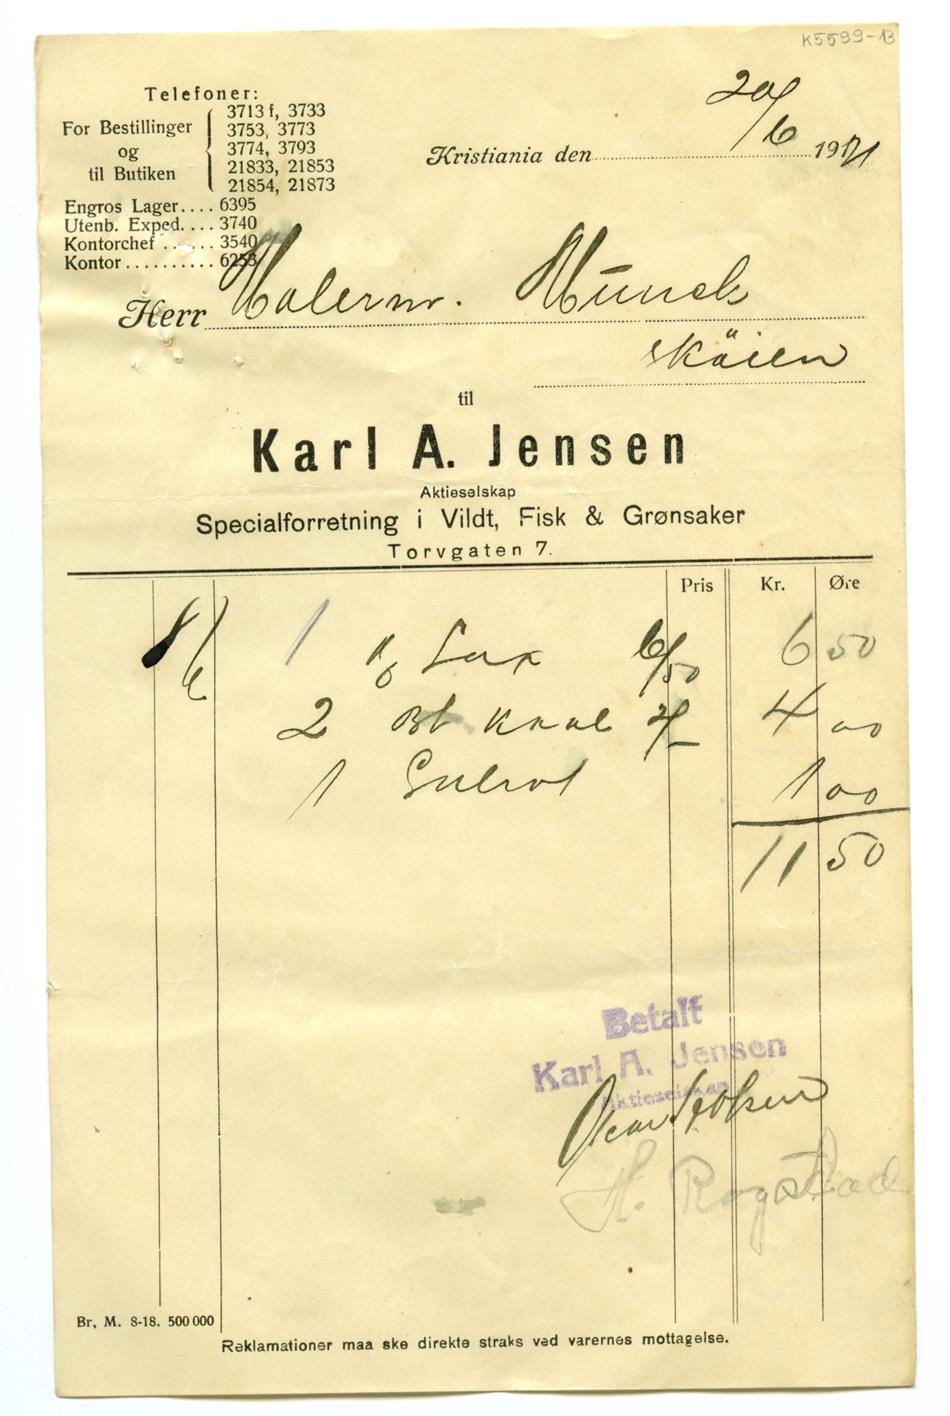 K5599-13
Telefoner:
For Bestillinger og til Butiken
3713 f, 3733
3753, 3773
3774, 3793
21833, 21853
21854, 21873
Engros Lager.... 6395
Utenb. Exped.... 3740
Kontorchef ...... 3540
Kontor.......... 6253
20/6
Kristiania den 1921
Herr Malerm. Munch
Sköien
til
Karl A. Jensen
Aktieselskap
Specialforretning i Vildt, Fisk & Grønsaker
Torvgaten 7.
Pris Kr. Øre
8/6 1 kg Lax 6/50 6 50
2 Bt Kaal 2/- 4 00
1 Gulrot 1 00
11 50
Betalt
Karl A. Jensen
Aktieselskap
H. Rogstad
Br. M. 8-18. 500 000
Reklamationer maa ske direkte straks ved varernes mottagelse.